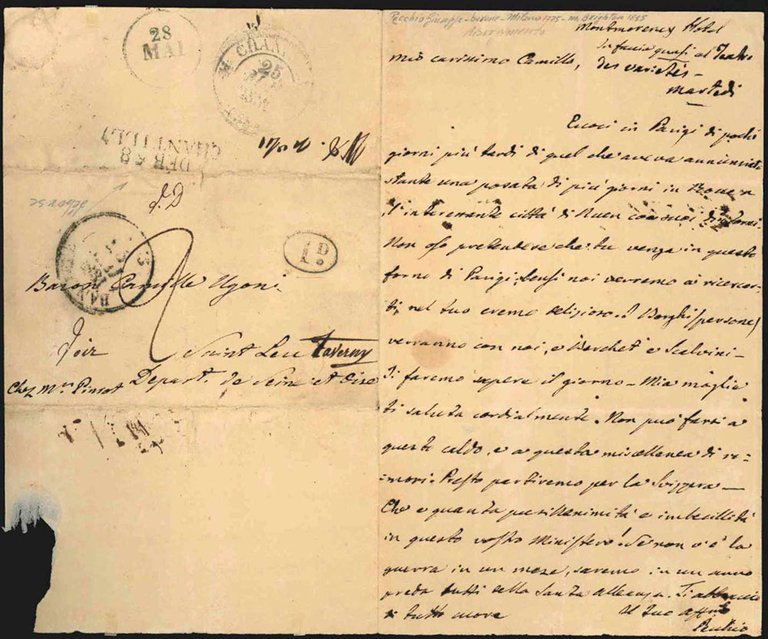 28
MAI
CHAN
25
DEB 68
CHANTILLY
J.D
1D
Baron Camille Ugoni
Saint Leu Taverny
Chez Mr Pinsot Depart. de Seine et Oise
Pecchio Giuseppe - barone - Milano 1775 - m. Brighton 1835
Montmorency Hotel
in faccia quasi al Teatro
des varietés -
martedi
mio carissimo Camillo,
Eccoci in Parigi di pochi
giorni più tardi di quel che aveva annunciato
stante una posata di più giorni in
l'interessante città di Ruen coi suoi dintorni.
Non oso pretendere che tu venga in questo
forno di Parigi. Bensì noi verremo a ricercar-
ti nel tuo eremo delizioso. I Borghi (persone)
verranno con noi, e Berchet e Scalvini -
Ti faremo sapere il giorno - Mia moglie
ti saluta cordialmente. Non può farsi a
questo caldo, e a questa miscellanea di ro-
-mori. Presto partiremo per la Svizzera -
Che e quanta pusillanimità e imbecillità
in questo vostro Ministero! Se non v'è la
guerra in un mese, saremo in un anno
preda tutti della Santa alleanza. Ti abbraccio
di tutto cuore
Il tuo affmo
Pecchio